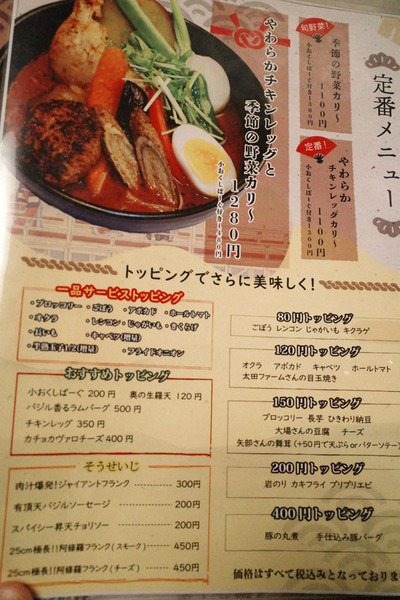 定番メニュー
旬野菜!
季節の野菜カリ〜
1100円
小おくしばーぐ付き1300円
定番!
やわらか
チキンレッグカリ〜
1100円
小おくしばーぐ付き1300円
やわらかチキンレッグと
季節の野菜カリ〜
1280円
小おくしばーぐ付き1480円
トッピングでさらに美味しく!
一品サービストッピング
・ブロッコリー ・ごぼう ・アボカド ・ホールトマト
・オクラ ・レンコン ・じゃがいも ・きくらげ
・長いも ・キャベツ(増量)
・半熟玉子1/2(増量) ・フライドオニオン
おすすめトッピング
小おくしばーぐ 200円 奥の生羅天 120円
バジル香るラムバーグ 500円
チキンレッグ 350円
カチョカヴァロチーズ 400円
そうせいじ
肉汁爆発!ジャイアントフランク ………… 300円
有頂天バジルソーセージ ………… 200円
スパイシー昇天チョリソー ………… 200円
25cm極長!!阿修羅フランク(スモーク) …… 450円
25cm極長!!阿修羅フランク(チーズ) …… 450円
80円トッピング
ごぼう レンコン じゃがいも キクラゲ
120円トッピング
オクラ アボカド キャベツ ホールトマト
太田ファームさんの目玉焼き
150円トッピング
ブロッコリー 長芋 ひきわり納豆
大場さんの豆腐 チーズ
矢部さんの舞茸(+50円で天ぷらorバターソテー)
200円トッピング
岩のり カキフライ プリプリエビ
400円トッピング
豚の丸煮 手仕込み豚バーグ
価格はすべて税込みとなっておりま